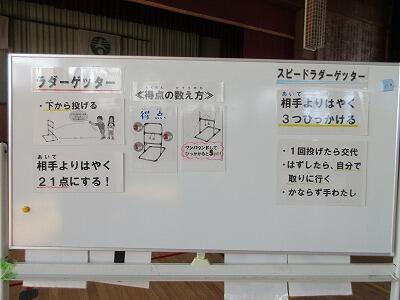 ラダーゲッター
・下から投げる
あいて
相手よりはやく
２１点にする！
≪得点の数え方≫
得点
ワンバウンドして
スピードラダーゲッター
あいて
相手よりはやく
３つひっかける
・１回投げたら交代
・はずしたら、自分で
取りに行く
・かならず手わたし